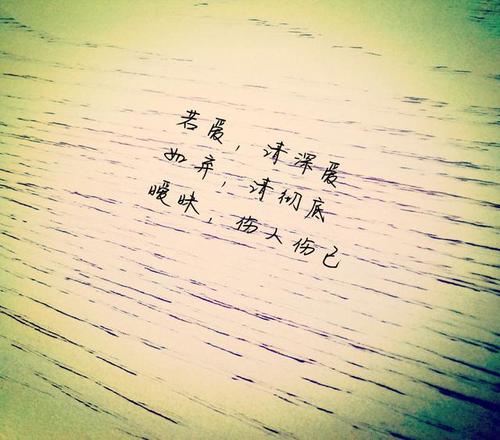 若爱，请深爱
如弃，请彻底
暧昧，伤人伤己